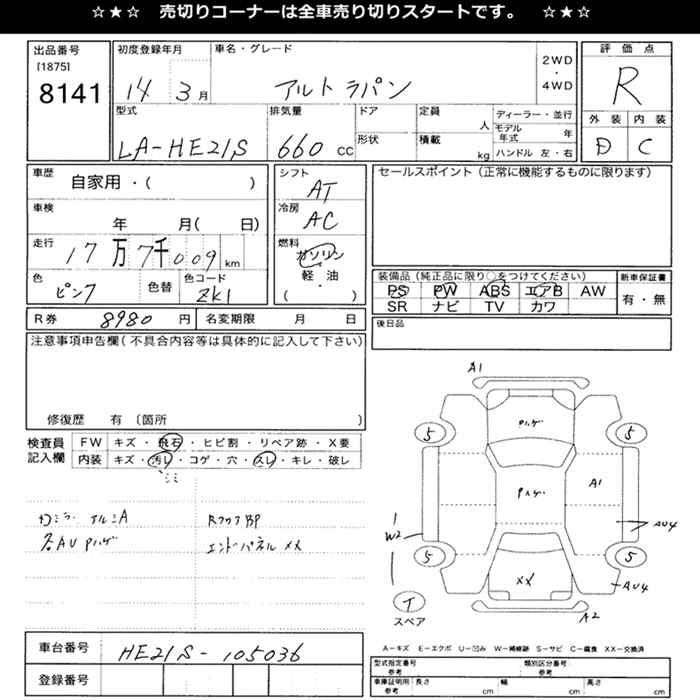 ☆★☆ 売切りコーナーは全車売り切りスタートです。 ☆★☆
出品番号
[1875]
8141
初度登録年月
14 3月
車名・グレード
アルトラパン
2WD
・
4WD
評価点
R
外装 内装
D C
型式
LA-HE21S
排気量
660 cc
ドア
形状
定員
人
積載
kg
ディーラー・並行
モデル年式 年
ハンドル 左・右
車歴
自家用・( )
車検
年 月( 日)
走行
17万7千009 km
色
ピンク
色替
色コード
ZK1
シフト
AT
冷房
AC
燃料
ガソリン
・
軽・油
( )
セールスポイント(正常に機能するものに限ります)
装備品(純正品に限り○をつけてください)
PS PW ABS エアB AW
SR ナビ TV カワ
新車保証書
有・無
後日品
R券 8980 円
名変期限 月 日
注意事項申告欄(不具合内容等は具体的に記入して下さい)
修復歴 有 〔箇所 〕
検査員記入欄
FW キズ・飛石・ヒビ割・リペア跡・X要
内装 キズ・汚レ・コゲ・穴・久レ・キレ・破レ
シミ
RフロアBP
エンドパネルXX
A1
5 5
Pハゲ
Pハゲ
A1
W2
AU4
5 5
XX
AU4
A2
スペア
A−キズ E−エクボ U−凹み W−補修跡 S−サビ C−腐食 XX−交換済
車台番号
HE21S-105036
登録番号
型式指定番号
参考
類別区分番号
参考
車庫証明用
参考
長さ cm
幅 cm
高さ cm